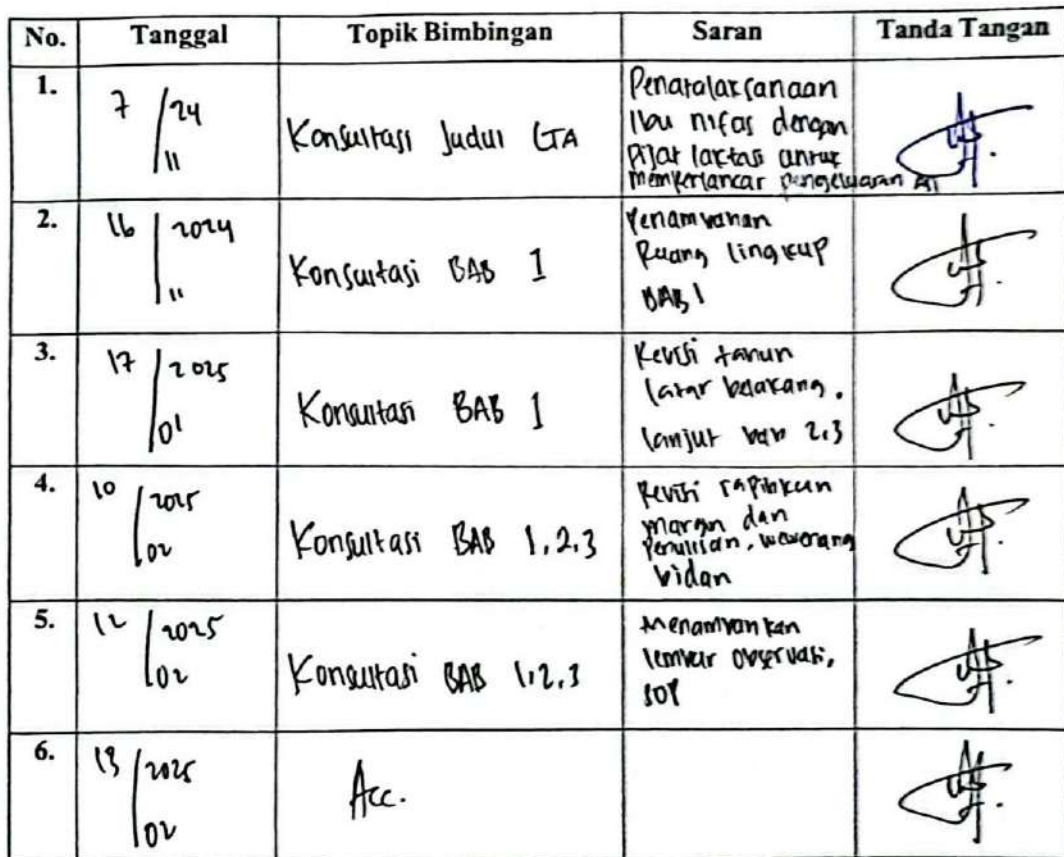 No. Tanggal Topik Bimbingan Saran Tanda Tangan
1. 7/11 24 Konsultasi Judul LTA Penatalaksanaan
Ibu nifas dengan
pijat laktasi untuk
memperlancar pengeluaran ASI
2. 16/11 2024 Konsultasi BAB 1 Penambahan
Ruang lingkup
BAB 1
3. 17/01 2025 Konsultasi BAB 1 Revisi tahun
latar belakang,
lanjut bab 2,3
4. 10/02 2025 Konsultasi BAB 1,2,3 Revisi rapihkan
margin dan
penulisan, wewenang
bidan
5. 12/02 2025 Konsultasi BAB 1,2,3 Menambahkan
lembar observasi,
SOP
6. 13/02 2025 Acc.